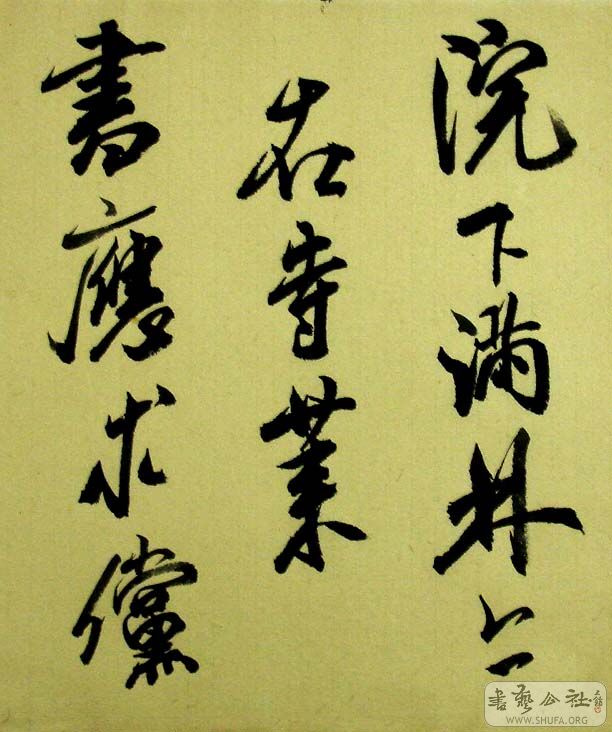 院下滿林上
在寺業
書應求儻
書藝公社
WWW.SHUFA.ORG